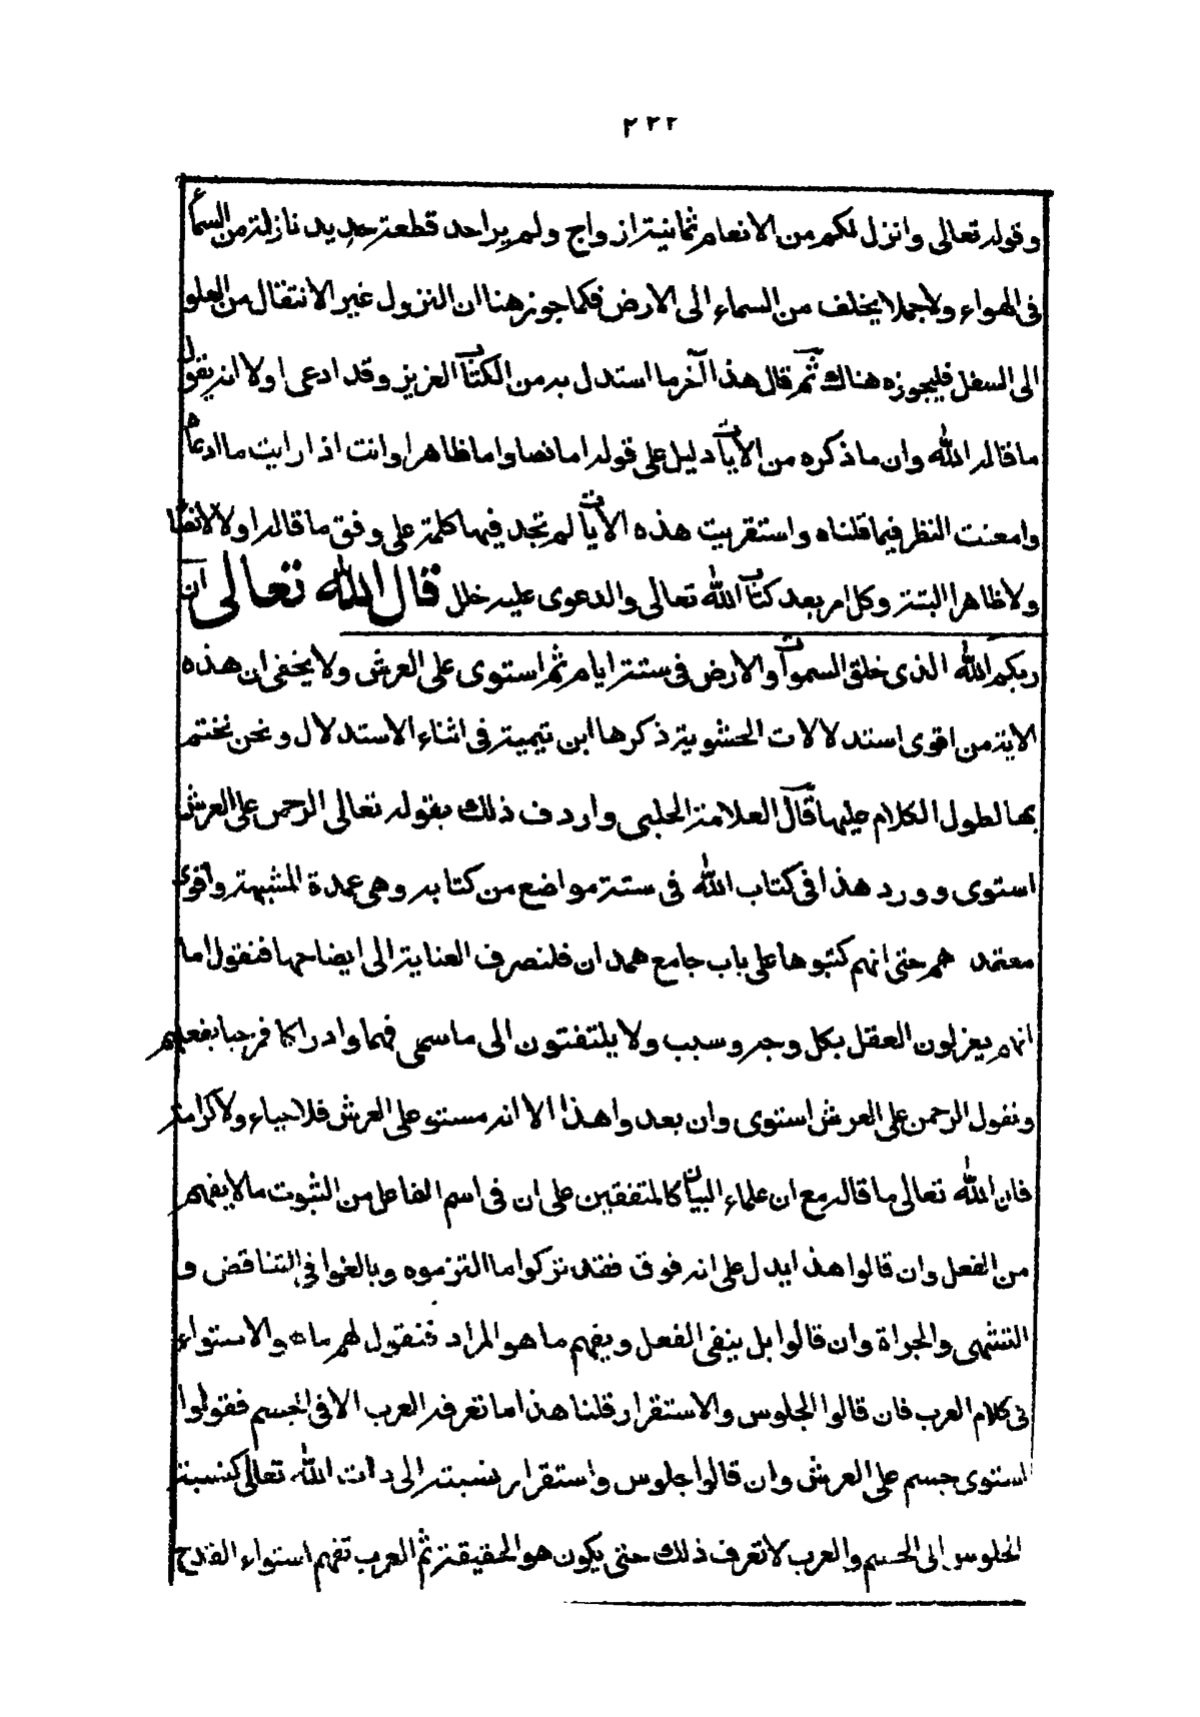 ٢٢٢
وقوله تعالى وانزل لكم من الانعام ثمانية ازواج ولم ير احد قطعة حديد نازلة من السماء
فى الهواء ولا جملا يخلف من السماء الى الارض فكما جوز هنا ان النزول غير الانتقال من العلو
الى السفل فليجوزه هناك ثم قال هذا آخر ما استدل به من الكتاب العزيز وقد ادعى اولا انه يقول
ما قاله الله وان ما ذكره من الآيات دليل على قوله اما نصا واما ظاهرا وانت اذا رايت ما ادعاه
وامعنت النظر فيما قلناه واستقريت هذه الآيات لم تجد فيها كلمة على وفق ما قاله اولا لا نصا
ولا ظاهرا البتة وكل امر بعد كتاب الله تعالى والدعوى عليه خلل قال الله تعالى ان
ربكم الله الذى خلق السموات والارض فى ستة ايام ثم استوى على العرش ولا يخفى ان هذه
الاية من اقوى استدلالات الحشوية ذكرها ابن تيمية فى اثناء الاستدلال ونحن نختم
بها لطول الكلام عليها قال العلامة الحلبى واردف ذلك بقوله تعالى الرحمن على العرش
استوى وورد هذا فى كتاب الله فى ستة مواضع من كتابه وهى عمدة المشبهة واقوى
معتمد هم حتى انهم كتبوها على باب جامع همدان فلنصرف العناية الى ايضاحها فنقول اما
انهم يعزلون العقل بكل وجه وسبب ولا يلتفتون الى ما سمى فهما وادراكا فمرحبا بفعلهم
ونقول الرحمن على العرش استوى وان بعدوا هذا الا انه مستو على العرش فلا حباء ولا كرامة
فان الله تعالى ما قاله مع ان علماء البيان كالمتفقين على ان فى اسم الفاعل من الثبوت ما لا يفهم
من الفعل وان قالوا هذا يدل على انه فوق فقد تركوا ما التزموه وبالغوا فى التناقض و
التشهى والجراة وان قالوا بل ينفى الفعل ويفهم ما هو المراد فنقول لهم ما هو الاستواء
فى كلام العرب فان قالوا الجلوس والاستقرار قلنا هذا ما تعرفه العرب الا فى الجسم فقولوا
استوى جسم على العرش وان قالوا جلوس واستقرار نسبته الى ذات الله تعالى كنسبة
الجلوس الى الجسم والعرب لا تعرف ذلك حتى يكون هو الحقيقة ثم العرب تفهم استواء القدح